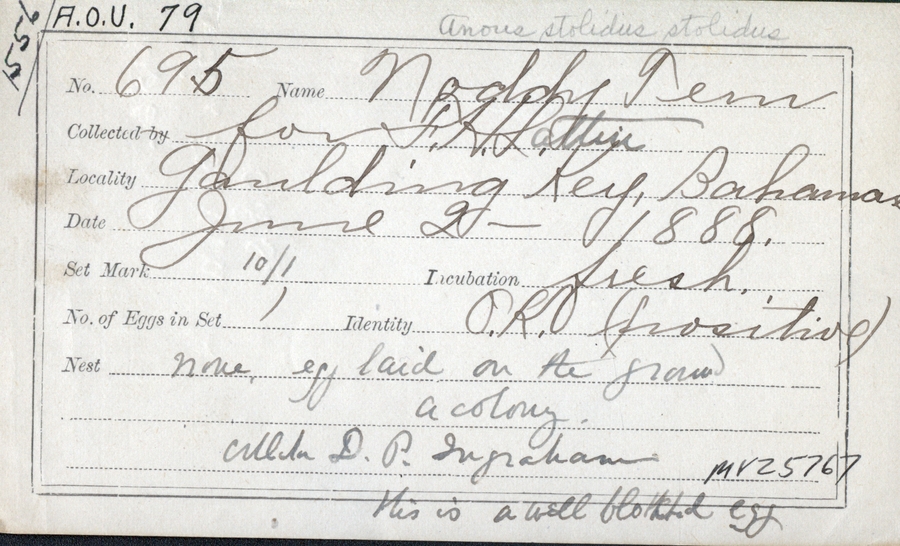 A.O.U. 79
Anous stolidus stolidus
No. 695 Name Noddy Tern
Collected by for F. H. Lattin
Locality Gaulding Key, Bahamas
Date June 2 - 1888.
Set Mark 10/1 Incubation fresh.
No. of Eggs in Set 1 Identity O.K. (positive)
Nest none, egg laid on the ground
a colony.
D. P. Ingraham
MVZ 5767
this is a well blotched egg